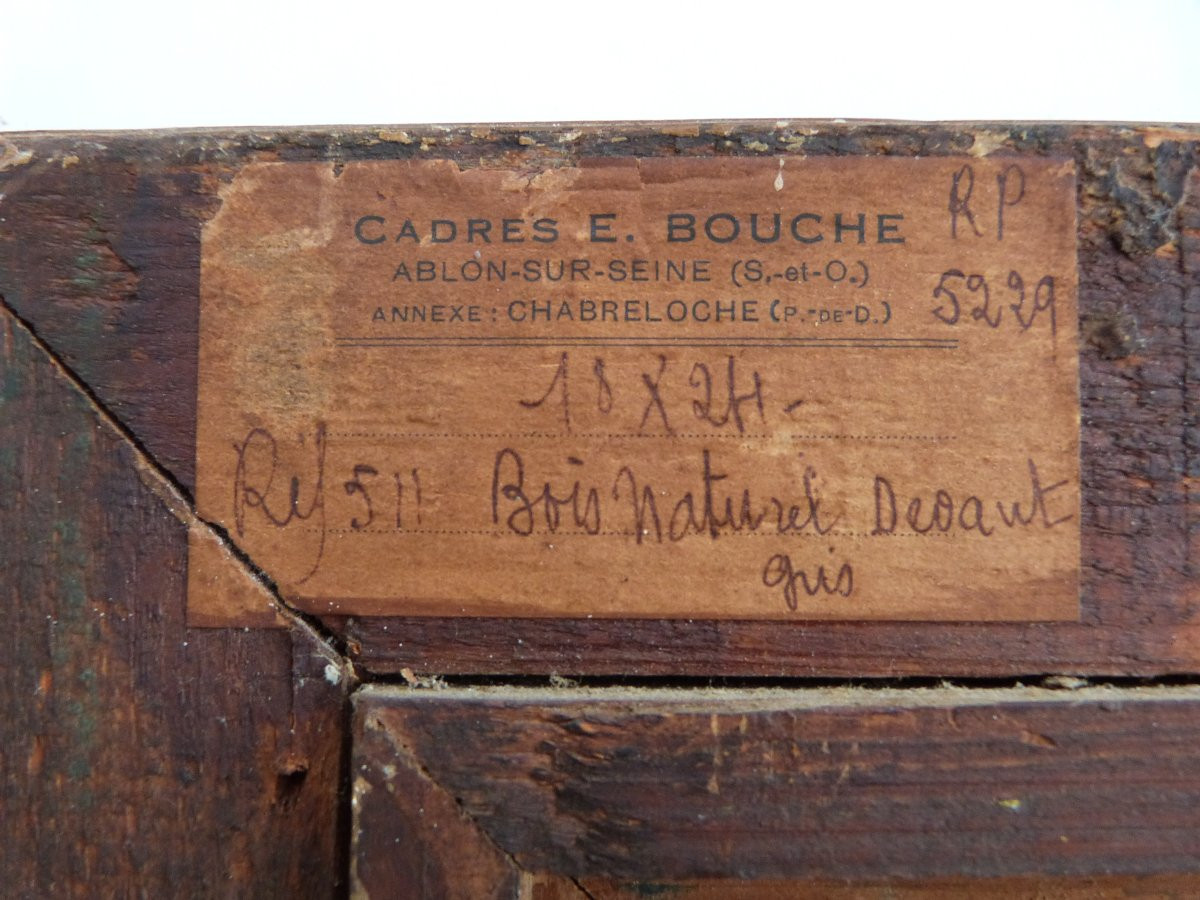 CADRES E. BOUCHE
ABLON-SUR-SEINE (S.-et-O.)
ANNEXE : CHABRELOCHE (P.-DE-D.)
RP
5229
18 X 24 -
Réf 511 Bois Naturel Devant
gris